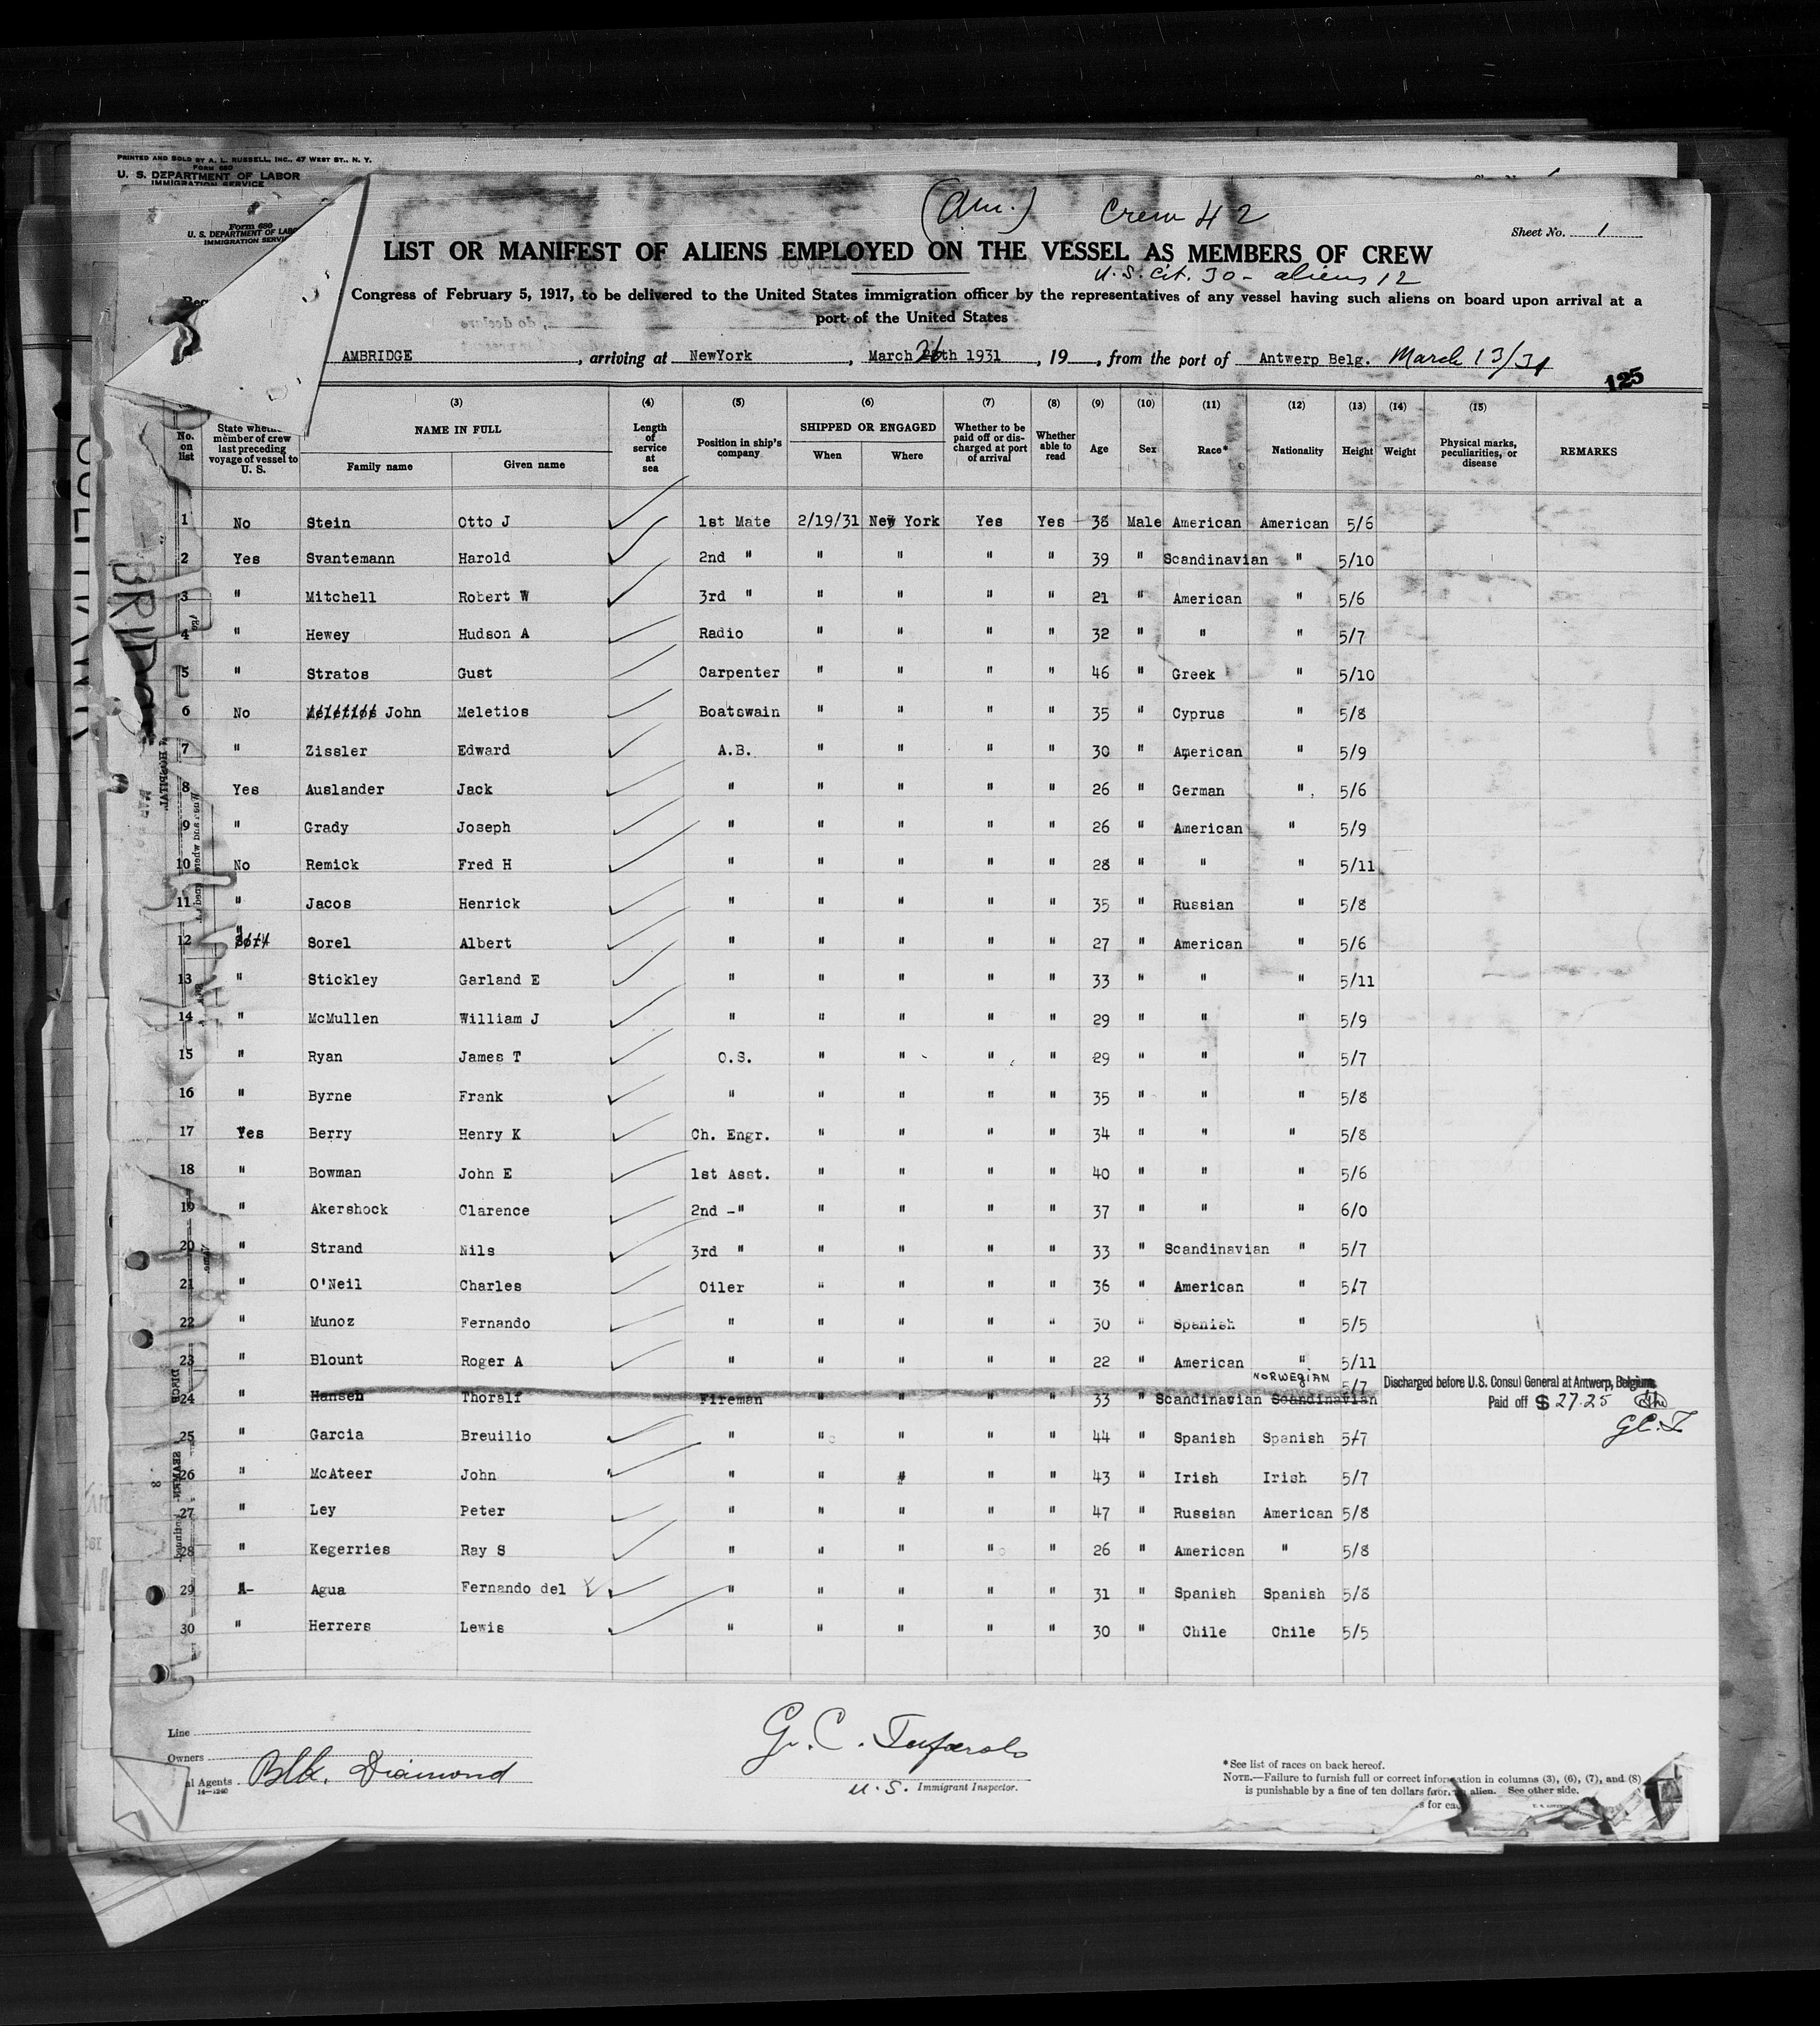 PRINTED AND SOLD BY A. L. RUSSELL, INC., 47 WEST ST., N. Y.
FORM 680
U. S. DEPARTMENT OF LABOR
IMMIGRATION SERVICE
Form 680
U. S. DEPARTMENT OF LABO
IMMIGRATION SERVIC
(Am.) Crew 42
Sheet No. 1
LIST OR MANIFEST OF ALIENS EMPLOYED ON THE VESSEL AS MEMBERS OF CREW
U.S. cit. 30 - aliens 12
Congress of February 5, 1917, to be delivered to the United States immigration officer by the representatives of any vessel having such aliens on board upon arrival at a
port of the United States
AMBRIDGE, arriving at NewYork, March 26th 1931, 19, from the port of Antwerp Belg. March 13/31
125
(3) (4) (5) (6) (7) (8) (9) (10) (11) (12) (13) (14) (15)
No. on list State whether member of crew last preceding voyage of vessel to U. S. NAME IN FULL Family name Given name Length of service at sea Position in ship's company SHIPPED OR ENGAGED When Where Whether to be paid off or discharged at port of arrival Whether able to read Age Sex Race* Nationality Height Weight Physical marks, peculiarities, or disease REMARKS
1 No Stein Otto J 1st Mate 2/19/31 New York Yes Yes 38 Male American American 5/6
2 Yes Svantemann Harold 2nd " " " " " 39 " Scandinavian " 5/10
3 " Mitchell Robert W 3rd " " " " " 21 " American " 5/6
4 " Hewey Hudson A Radio " " " " 32 " " " 5/7
5 " Stratos Gust Carpenter " " " " 46 " Greek " 5/10
6 No Meletios John Meletios Boatswain " " " " 35 " Cyprus " 5/8
7 " Zissler Edward A.B. " " " " 30 " American " 5/9
8 Yes Auslander Jack " " " " " 26 " German " 5/6
9 " Grady Joseph " " " " " 26 " American " 5/9
10 No Remick Fred H " " " " " 28 " " " 5/11
11 " Jacos Henrick " " " " " 35 " Russian " 5/8
12 " Sorel Albert " " " " " 27 " American " 5/6
13 " Stickley Garland E " " " " " 33 " " " 5/11
14 " McMullen William J " " " " " 29 " " " 5/9
15 " Ryan James T O.S. " " " " 29 " " " 5/7
16 " Byrne Frank " " " " " 35 " " " 5/8
17 Yes Berry Henry K Ch. Engr. " " " " 34 " " " 5/8
18 " Bowman John E 1st Asst. " " " " 40 " " " 5/6
19 " Akershock Clarence 2nd -" " " " " 37 " " " 6/0
20 " Strand Nils 3rd " " " " " 33 " Scandinavian " 5/7
21 " O'Neil Charles Oiler " " " " 36 " American " 5/7
22 " Munoz Fernando " " " " " 30 " Spanish " 5/5
23 " Blount Roger A " " " " " 22 " American " 5/11
24 " Hansen Thoralf Fireman " " " " 33 " Scandinavian Scandinavian NORWEGIAN 5/7 Discharged before U.S. Consul General at Antwerp, Belgium.
Paid off $ 27.25
G.C.T
25 " Garcia Breuilio " " " " " 44 " Spanish Spanish 5/7
26 " McAteer John " " " " " 43 " Irish Irish 5/7
27 " Ley Peter " " " " " 47 " Russian American 5/8
28 " Kegerries Ray S " " " " " 26 " American " 5/8
29 Agua Fernando del " " " " " 31 " Spanish Spanish 5/8
30 " Herrers Lewis " " " " " 30 " Chile Chile 5/5
Line
Owners
al Agents Blk. Diamond
14—1240
G. C.
U.S. Immigrant Inspector.
*See list of races on back hereof.
NOTE.—Failure to furnish full or correct information in columns (3), (6), (7), and (8)
is punishable by a fine of ten dollars for alien. See other side.
s for eac